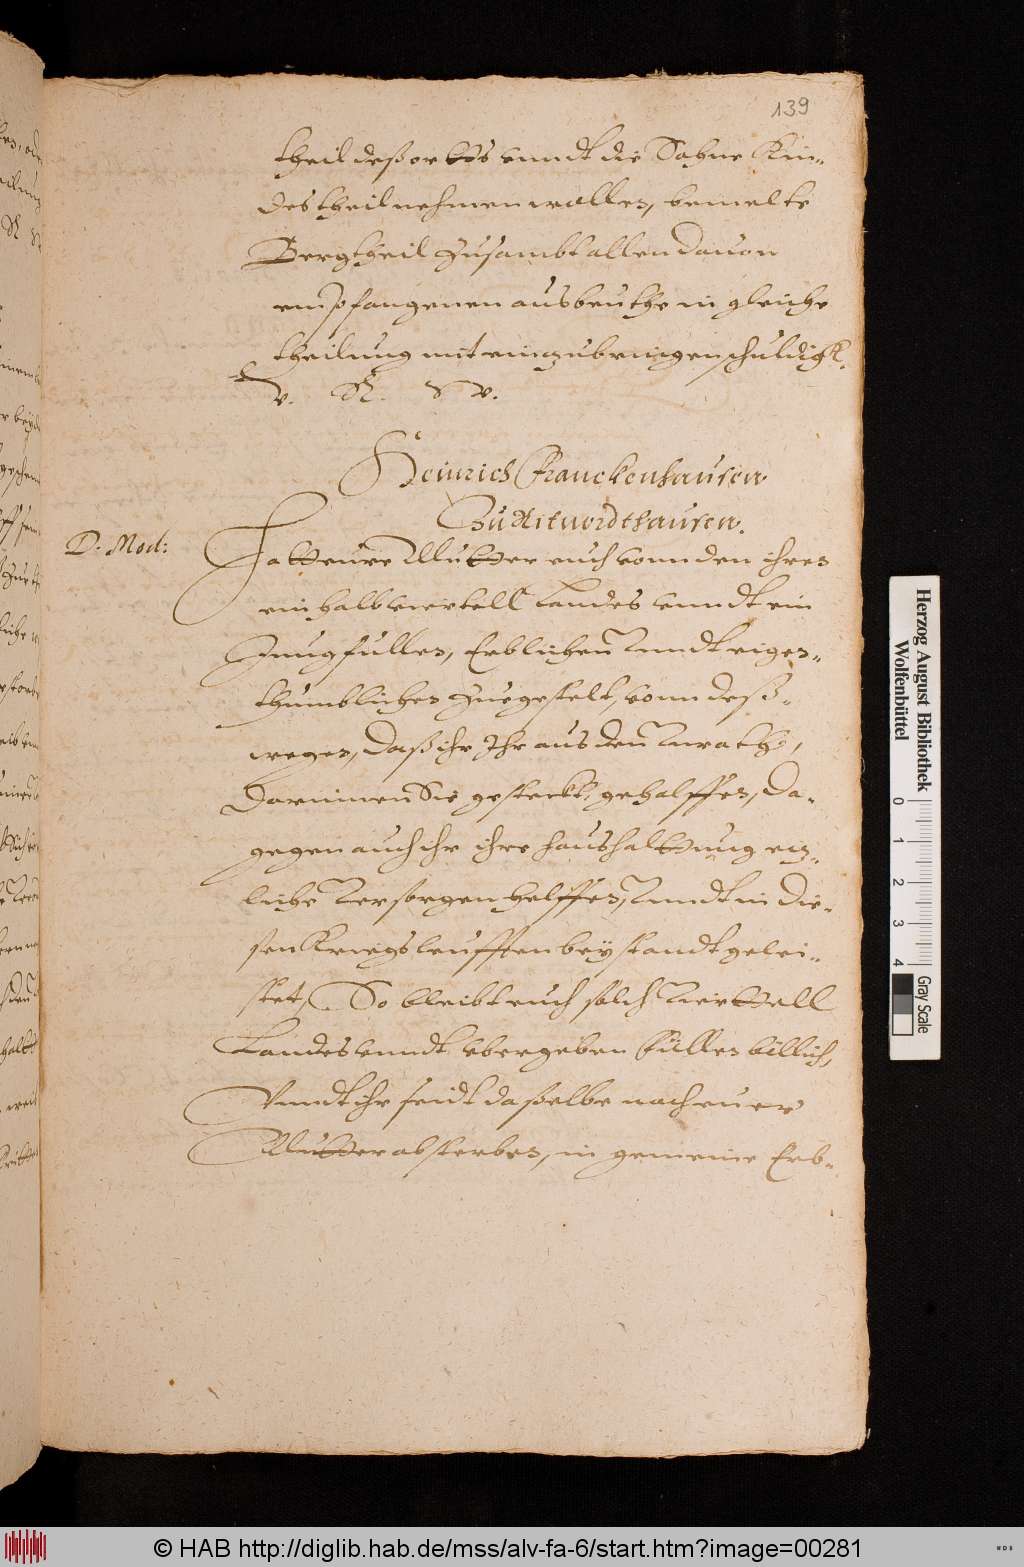 139
theil deß orttes vnndt die Söhne Kin-
destheil nehmen wollen, bemelte
Bergtheil zusambt allen dauon
empfangenen ausbeuthe in gleiche
theilung mit einzubringen schuldigk.
v. R. W.
Heinrich Franckenhausen
Zu Altnordthausen.
D. Mod:
Hatt eure Mutter euch vonn den ihren
ein halb viertell Landes vnndt ein
Jung füllen, Erblichen vnndt eigen-
thumblichen zuegestelt, vonn deß-
wegen, daß ihr Ihr aus den vnrath,
darinnen Sie gesteckt, geholffen, da-
gegen auch ihr ihre haushalttung
liche versorgen helffen, vnndt in die-
sen Kriegsleufften beystandt gelei-
stet, So bleibt euch solch viertell
Landes vnndt vbergeben Füllen billich,
Vnndt ihr seidt daßelbe nach eurer
Mutter absterben, in gemeine Erb-
Herzog August Bibliothek
Wolfenbüttel
0 1 2 3 4
Gray Scale
© HAB http://diglib.hab.de/mss/alv-fa-6/start.htm?image=00281